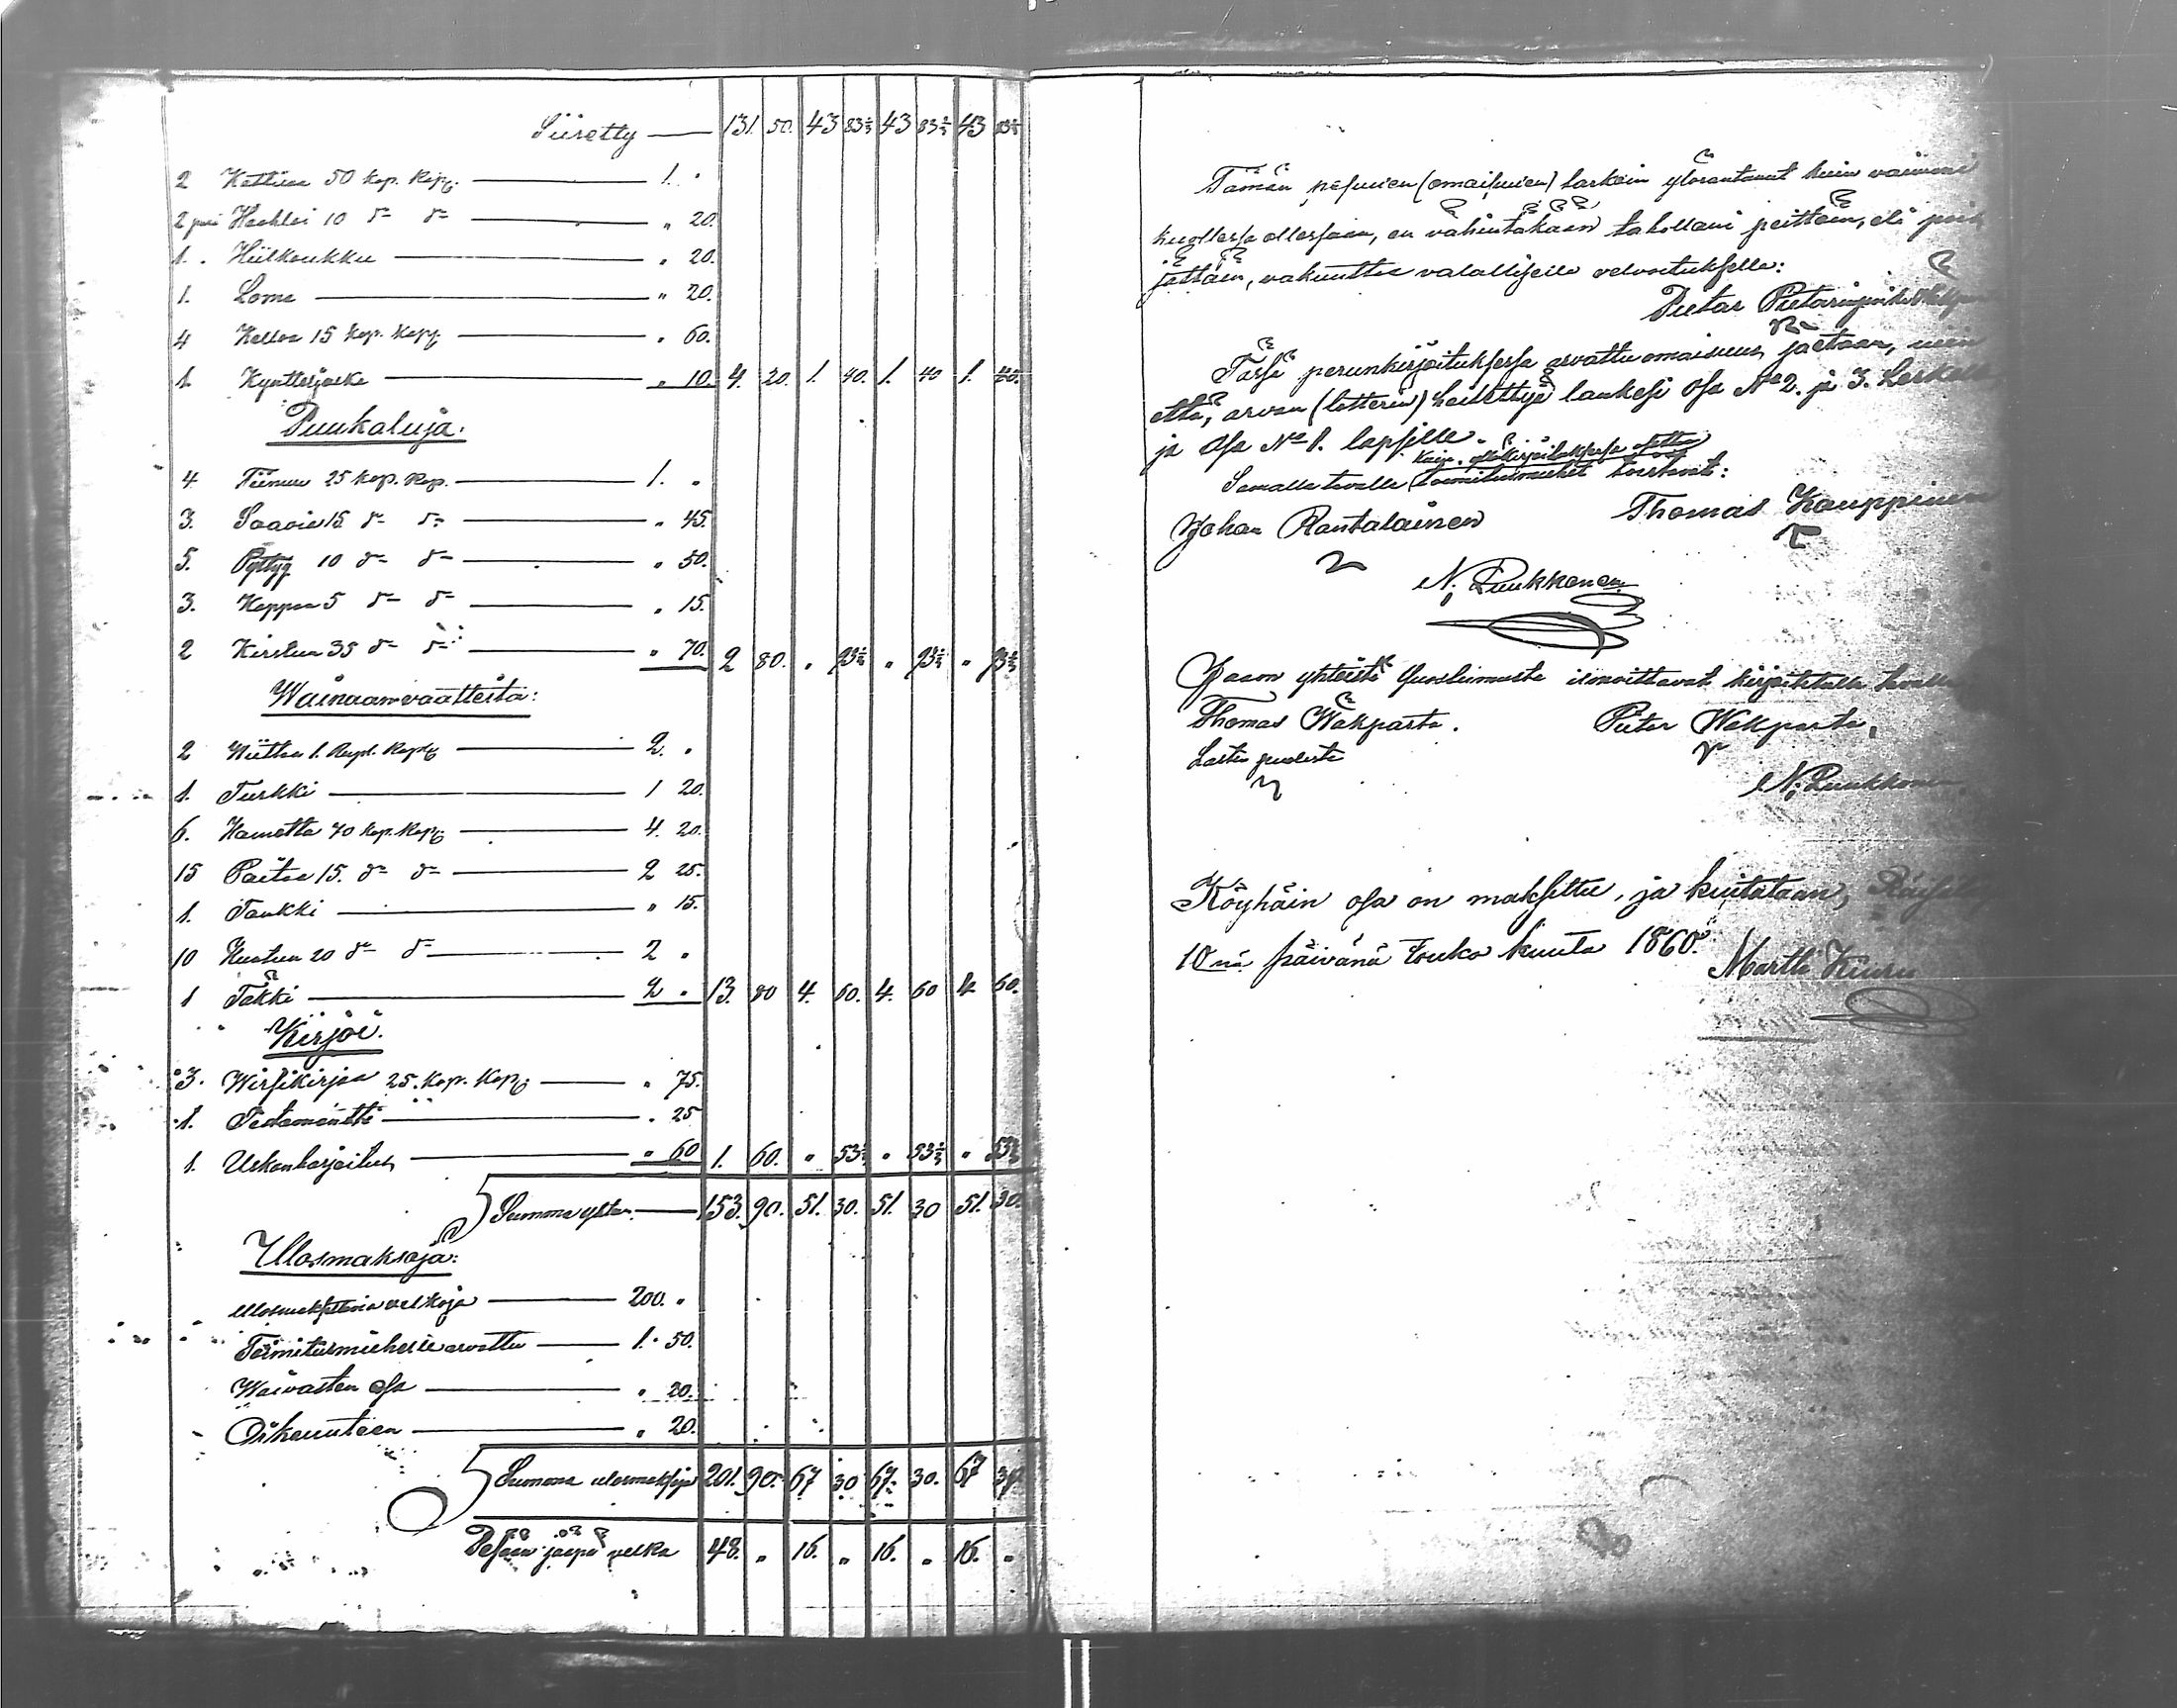 Siiretty — 131. 50. 43 83⅓ 43 83⅓ 43 83⅓
2 Kattilaa 50 kop. kap. — 1. "
2 Haahloi 10 d:o d:o — " 20.
1. Hiilkoukku — " 20.
1. Loma — " 20.
4 Kelloa 15 kop. kap. — " 60.
1. Kyntteljalka — " 10. 4. 20. 1. 40. 1. 40 1. 40.
Puukaluja.
4 Tiinuu 25 kop. kap. — 1. "
3. Saavia 15 d:o d:o — " 45.
5. Pyttyä 10 d:o d:o — " 50.
3. Kappaa 5 d:o d:o — " 15.
2 Kirstua 35 d:o d:o — " 70. 2 80. " 93⅓ " 93⅓ " 93⅓
Wainaan vaatteita:
2 Wiittaa 1. Rupl. kap. — 2. "
1. Turkki — 1 20.
6. Hametta 70 kop. kap. — 4. 20.
15 Paitaa 15. d:o d:o — 2 25.
1. Tankki — " 15.
10 Huntua 20 d:o d:o — 2 "
1 Takki — 2 " 13. 80 4. 60. 4. 60 4. 60.
Kirjoi.
3. Wirsikirjaa 25. kop. kap. — " 75.
1. Testamentti — " 25
1. Uskonharjoitus — " 60 1. 60. " 53⅓ " 53⅓ " 53⅓
Summa yhtee. — 153. 90. 51. 30. 51. 30 51. 30.
Ulosmaksoja:
Ulosmaksettavia velkoja — 200. "
Toimitusmiehelle arvattu — 1. 50.
Waivasten osa — " 20.
Oikeuuteen — " 20.
Summa ulosmaksoja 201. 90. 67 30 67. 30. 67 30
Pesään jääpi velka 48. " 16. " 16. " 16. "
Tämän pesuuien (omaisuuien) tarkoin ylösantanut kuin vaimoni
kuollessa ollessaan, en vähintäkään tahollani peittäin, eli pois
jättäin, vakuuttaa valallisella velvoituksella:
Pietar Pietarinpoika
Tässä perunkirjoituksessa arvattu omaisuus jaetaan, niin
että, arvan (lotterin) heitettyä lankesi osa No 2. ja 3. Leskelle
ja osa No 1. lapsille.
Kuin ylöskirjoituksessa otettu
Samalla tavalla toimitusmiehet toistavat:
Johan Rantalainen Thomas Kauppinen
N. Puukkonen
Jaon yhteistä suostumusta ilmoittavat kirjoitetulla tavalla
Thomas Wakparta. Pietar Wakparta,
Lasten puolesta
N. Puukkonen
Köyhäin osa on maksettu, ja kuitataan,
10 nä päivänä Touko kuuta 1860.
Martti Kiuru